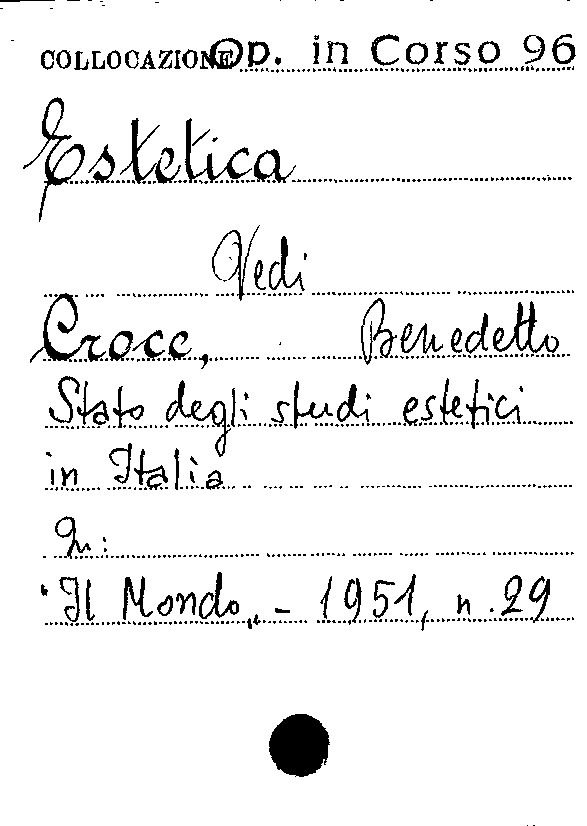 COLLOCAZIONE Op. in Corso 96
Estetica
Vedi
Croce, Benedetto
Stato degli studi estetici
in Italia
In:
"Il Mondo„ - 1951, n. 29